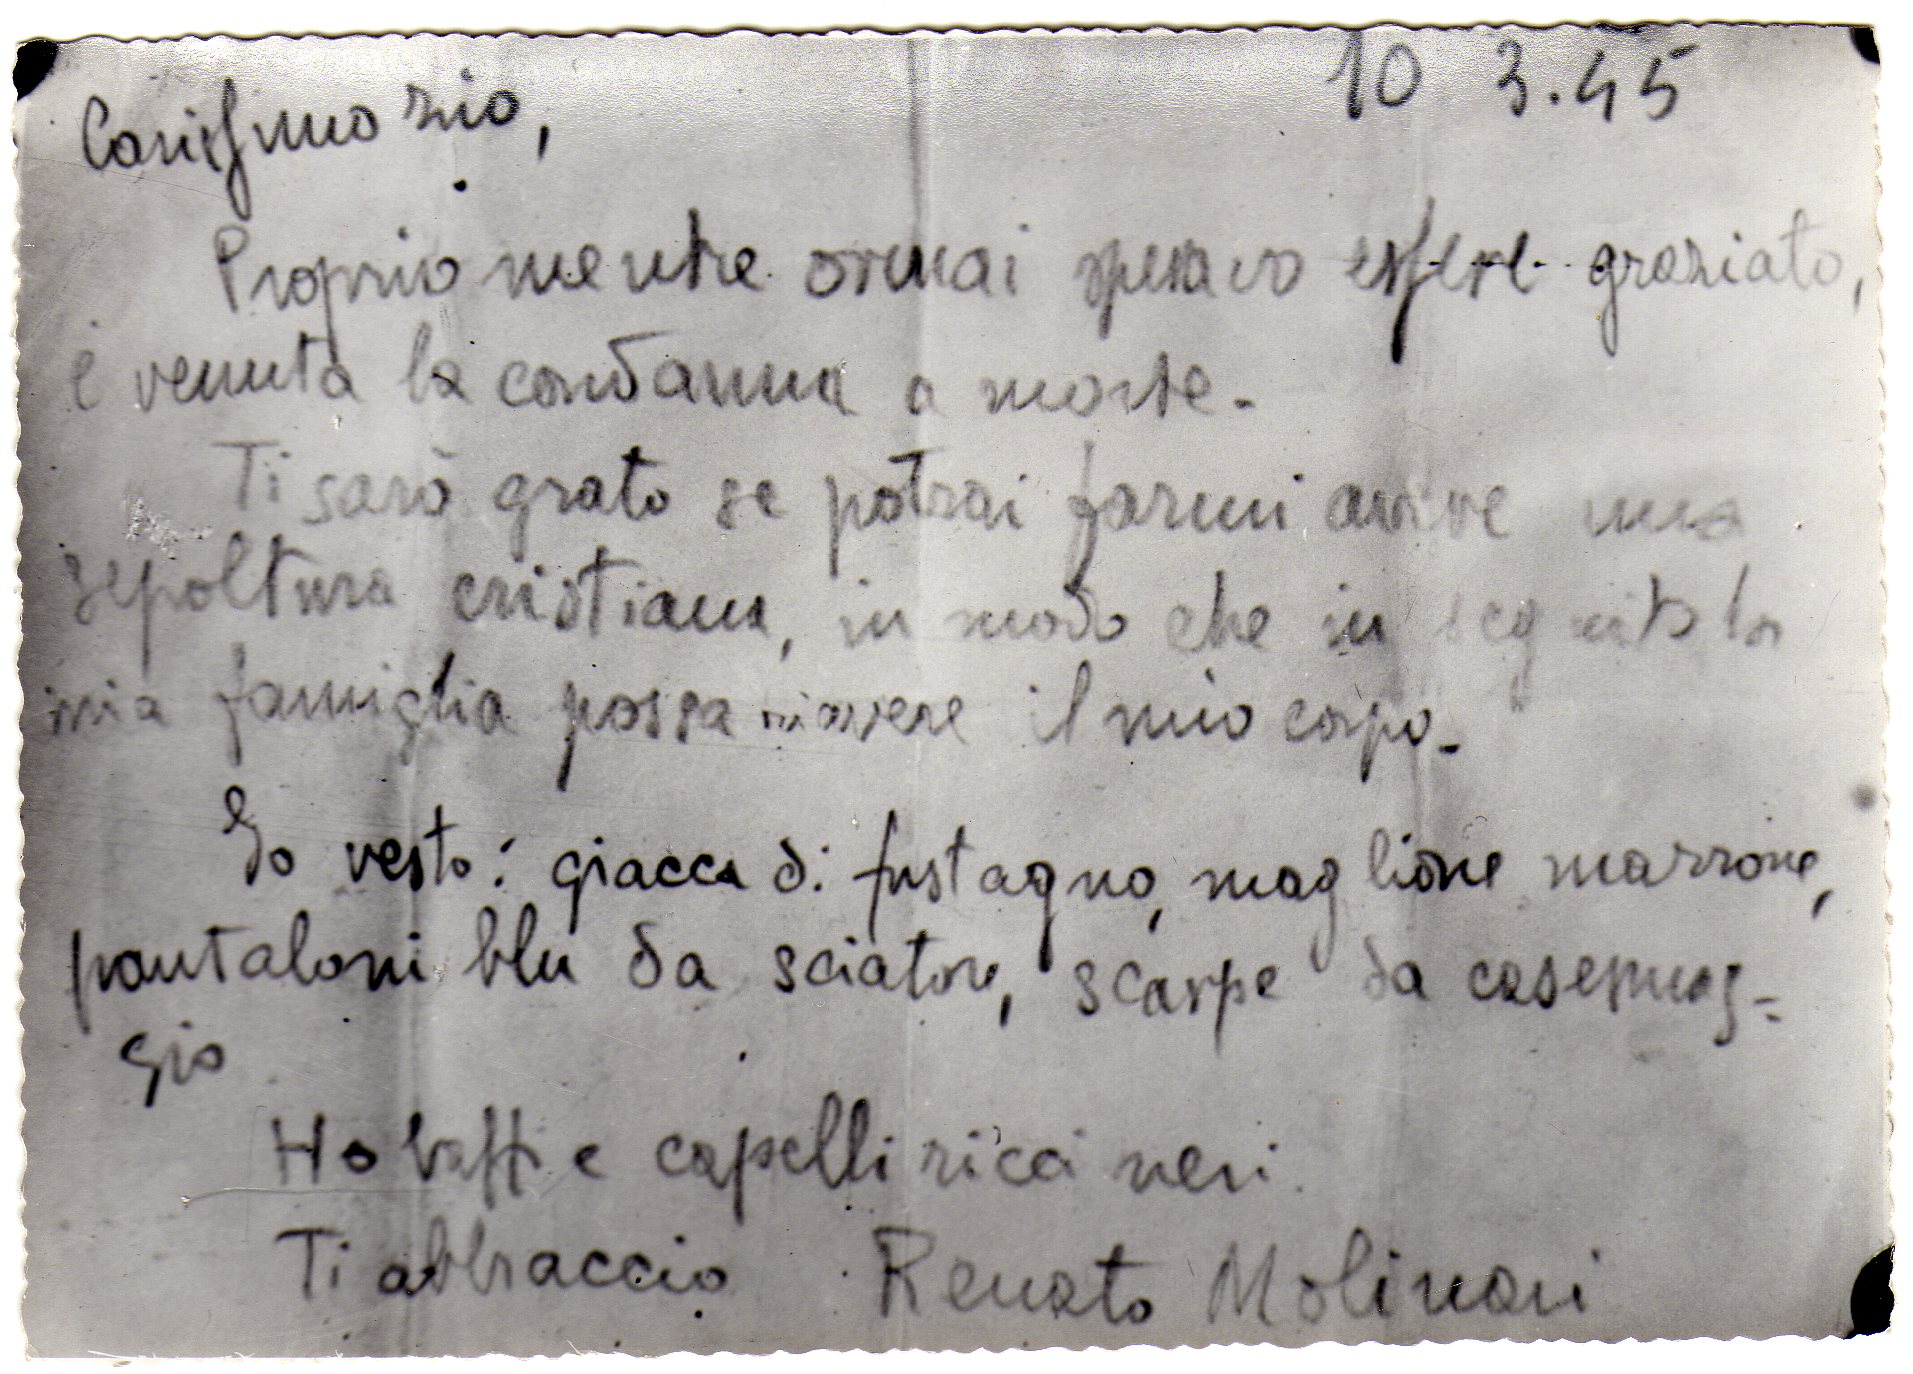 10 3.45
Carissimo zio,
Proprio mentre ormai speravo essere graziato,
è venuta la condanna a morte.
Ti sarò grato se potrai farmi avere una
sepoltura cristiana, in modo che in seguito la
mia famiglia possa riavere il mio corpo.
Io vesto: giacca di fustagno, maglione marrone,
pantaloni blu da sciatore, scarpe da casermag-
gio
Ho baffi e capelli ricci neri.
Ti abbraccio Renato Molinari